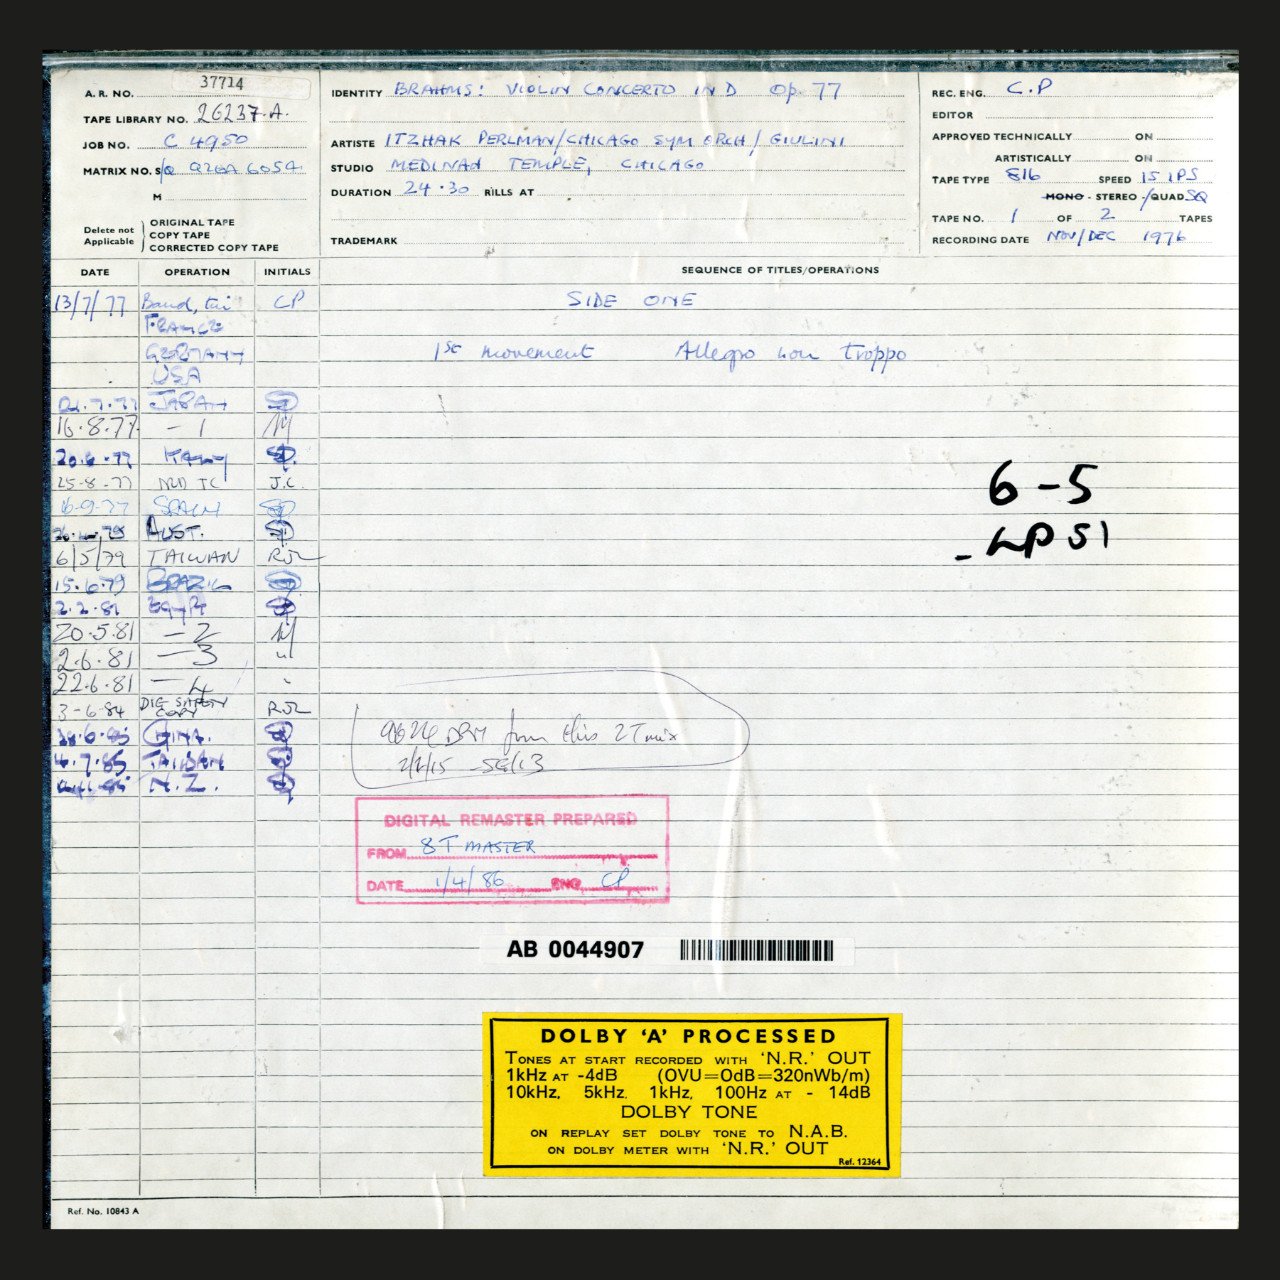 A. R. NO. 37714
TAPE LIBRARY NO. 26237.A.
JOB NO. C 4950
MATRIX NO. S/Q
M
Delete not Applicable
ORIGINAL TAPE
COPY TAPE
CORRECTED COPY TAPE
IDENTITY BRAHMS: VIOLIN CONCERTO IN D Op. 77
ARTISTE ITZHAK PERLMAN/CHICAGO SYM ORCH / GIULINI
STUDIO MEDINAH TEMPLE, CHICAGO
DURATION 24.30 RILLS AT
TRADEMARK
REC. ENG. C.P
EDITOR
APPROVED TECHNICALLY ON
ARTISTICALLY ON
TAPE TYPE 816 SPEED 15 IPS
MONO - STEREO - /QUAD SQ
TAPE NO. 1 OF 2 TAPES
RECORDING DATE NOV/DEC 1976
DATE OPERATION INITIALS SEQUENCE OF TITLES/OPERATIONS
13/7/77 CP SIDE ONE
FRANCE
GERMANY 1st movement Allegro non troppo
USA
JAPAN
16.8.77 -1
ITALY
25-8-77 J.C.
16-9-77 SPAIN
AUST.
6/5/79 TAIWAN RJL
15.6.79 BRAZIL
2.2.81 EGYPT
20.5.81 -2
2.6.81 -3
22.6.81 -4
3-6-84 DIG SAFETY COPY RJL
CHINA.
4.7.85 TAIWAN
N.Z.
6-5
- LP S1
9624 DRM from this 2T mix
DIGITAL REMASTER PREPARED
FROM 8T MASTER
DATE 1/4/86 ENG CP
AB 0044907
DOLBY 'A' PROCESSED
TONES AT START RECORDED WITH 'N.R.' OUT
1kHz AT -4dB (OVU=OdB=320nWb/m)
10kHz, 5kHz, 1kHz, 100Hz AT - 14dB
DOLBY TONE
ON REPLAY SET DOLBY TONE TO N.A.B.
ON DOLBY METER WITH 'N.R.' OUT
Ref. 12364
Ref. No. 10843 A